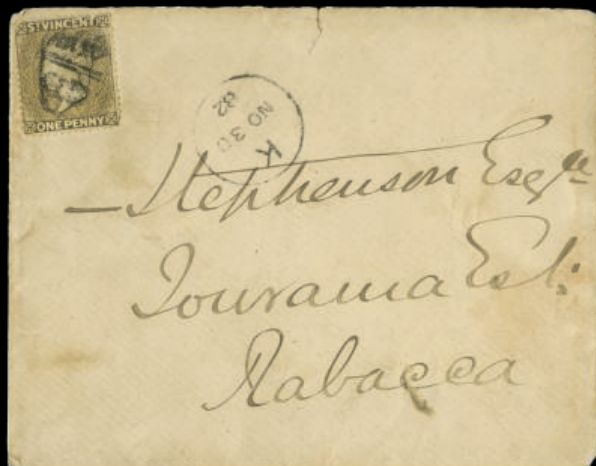 ST VINCENT
ONE PENNY
K
NO 30
82
— Stephenson Esqre
Tourama Est:
Rabacca